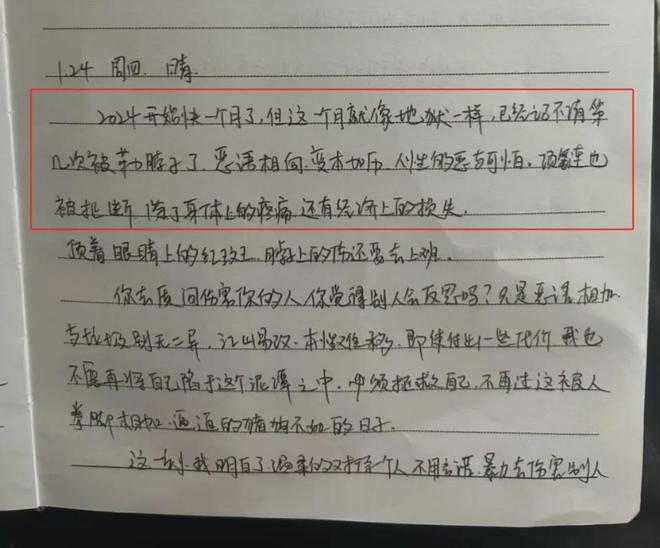 1.24 周四. 晴.
2024开始快一个月了,但这一个月就像地狱一样,已经记不清第
几次被勒脖子了.恶语相向.变本加厉.人性的恶与可怕.项链也
被扯断 除了身体上的疼痛.还有经济上的损失.
顶着眼睛上的红斑.脖子上的伤还要去上班.
你去质问伤害你的人你觉得别人会反思吗?只是恶语相加.
与垃圾别无二异,江山易改.本性难移.即使付出一些代价 我也
不要再将自己陷于这个泥潭之中.必须拯救自己,不再过这被人
拳脚相加.逼迫的猪狗不如的日子.
这一刻我明白了.温柔的对待一个人 不用言语.暴力去伤害别人